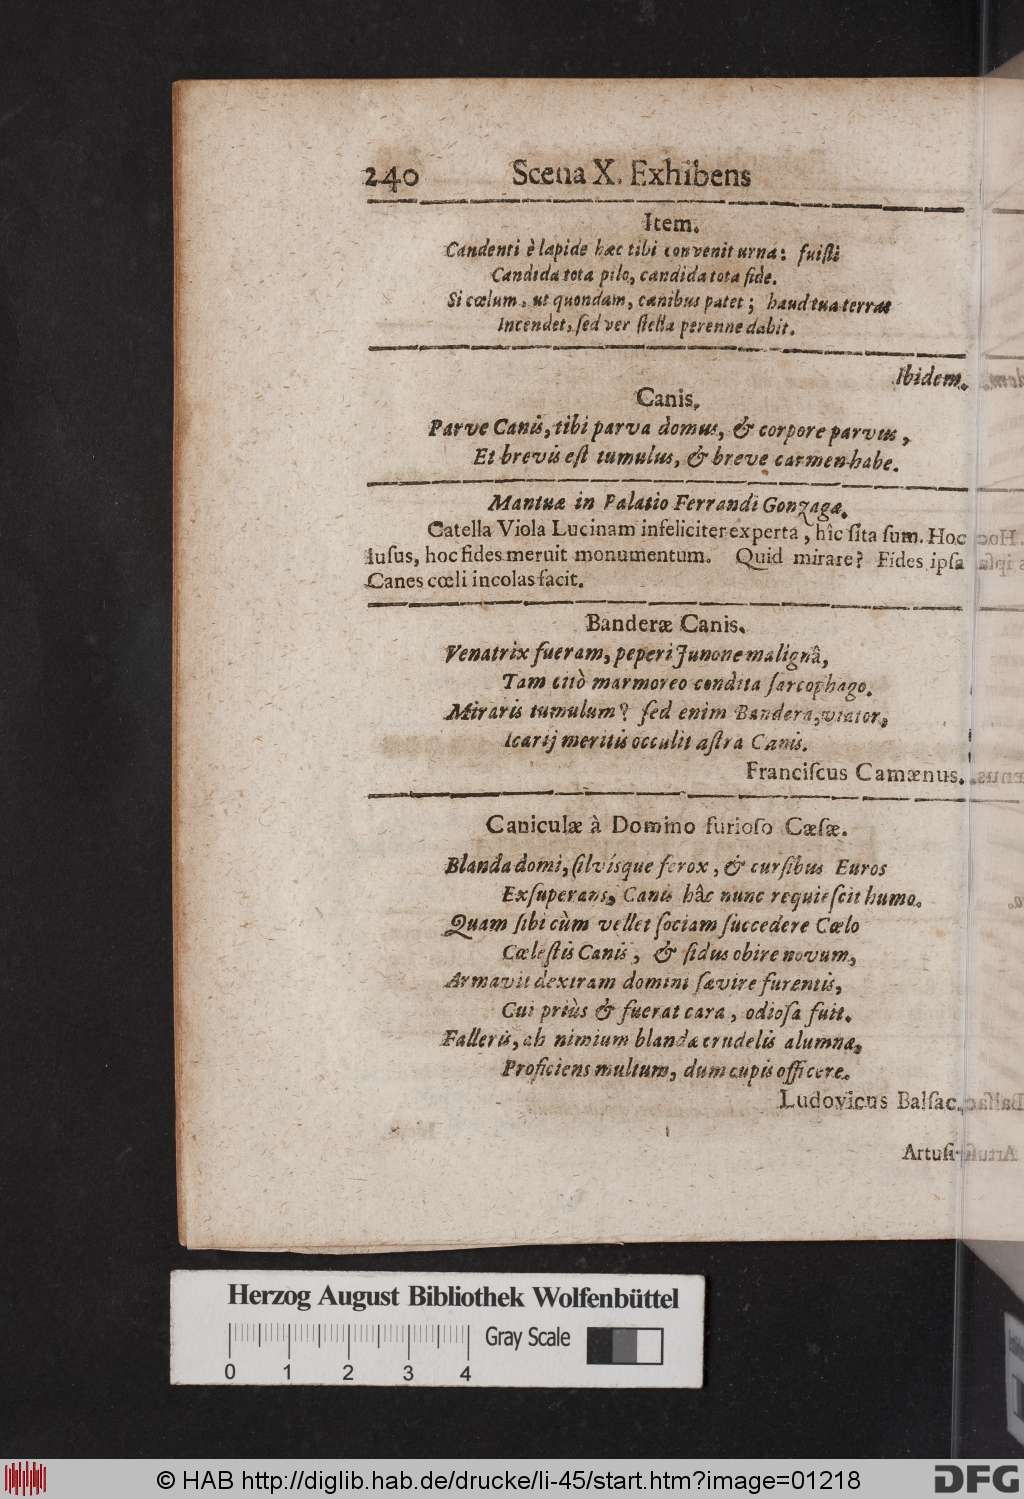 240 Scena X. Exhibens
Item.
Candenti è lapide hæc tibi convenit urna: fuisti
Candida tota pilo, candida tota fide.
Si cœlum, ut quondam, canibus patet; haud tua terras
Incendet, sed ver stella perenne dabit.
Ibidem.
Canis.
Parve Canis, tibi parva domus, & corpore parvus,
Et brevis est tumulus, & breve carmen habe.
Mantuæ in Palatio Ferrandi Gonzagæ.
Catella Viola Lucinam infeliciter experta, hîc ſita ſum. Hoc
luſus, hoc fides meruit monumentum. Quid mirare? Fides ipſa
Canes cœli incolas facit.
Banderæ Canis.
Venatrix fueram, peperi Junone malignâ,
Tam citò marmoreo condita ſarcophago.
Miraris tumulum? ſed enim Bandera, viator,
Icarij meritis occulit aſtra Canis.
Franciſcus Camænus.
Caniculæ à Domino furioſo Cæſæ.
Blanda domi, ſilvisque ferox, & curſibus Euros
Exſuperans, Canis hâc nunc requieſcit humo.
Quam ſibi cùm vellet ſociam ſuccedere Cœlo
Cœleſtis Canis, & ſidus obire novum,
Armavit dextram domini ſævire furentis,
Cui priùs & fuerat cara, odioſa fuit.
Falleris, ah nimium blandæ crudelis alumnæ,
Proficiens multum, dum cupis officere.
Ludovicus Balſac.
Artuſi-
Herzog August Bibliothek Wolfenbüttel
Gray Scale
0 1 2 3 4
© HAB http://diglib.hab.de/drucke/li-45/start.htm?image=01218
DFG